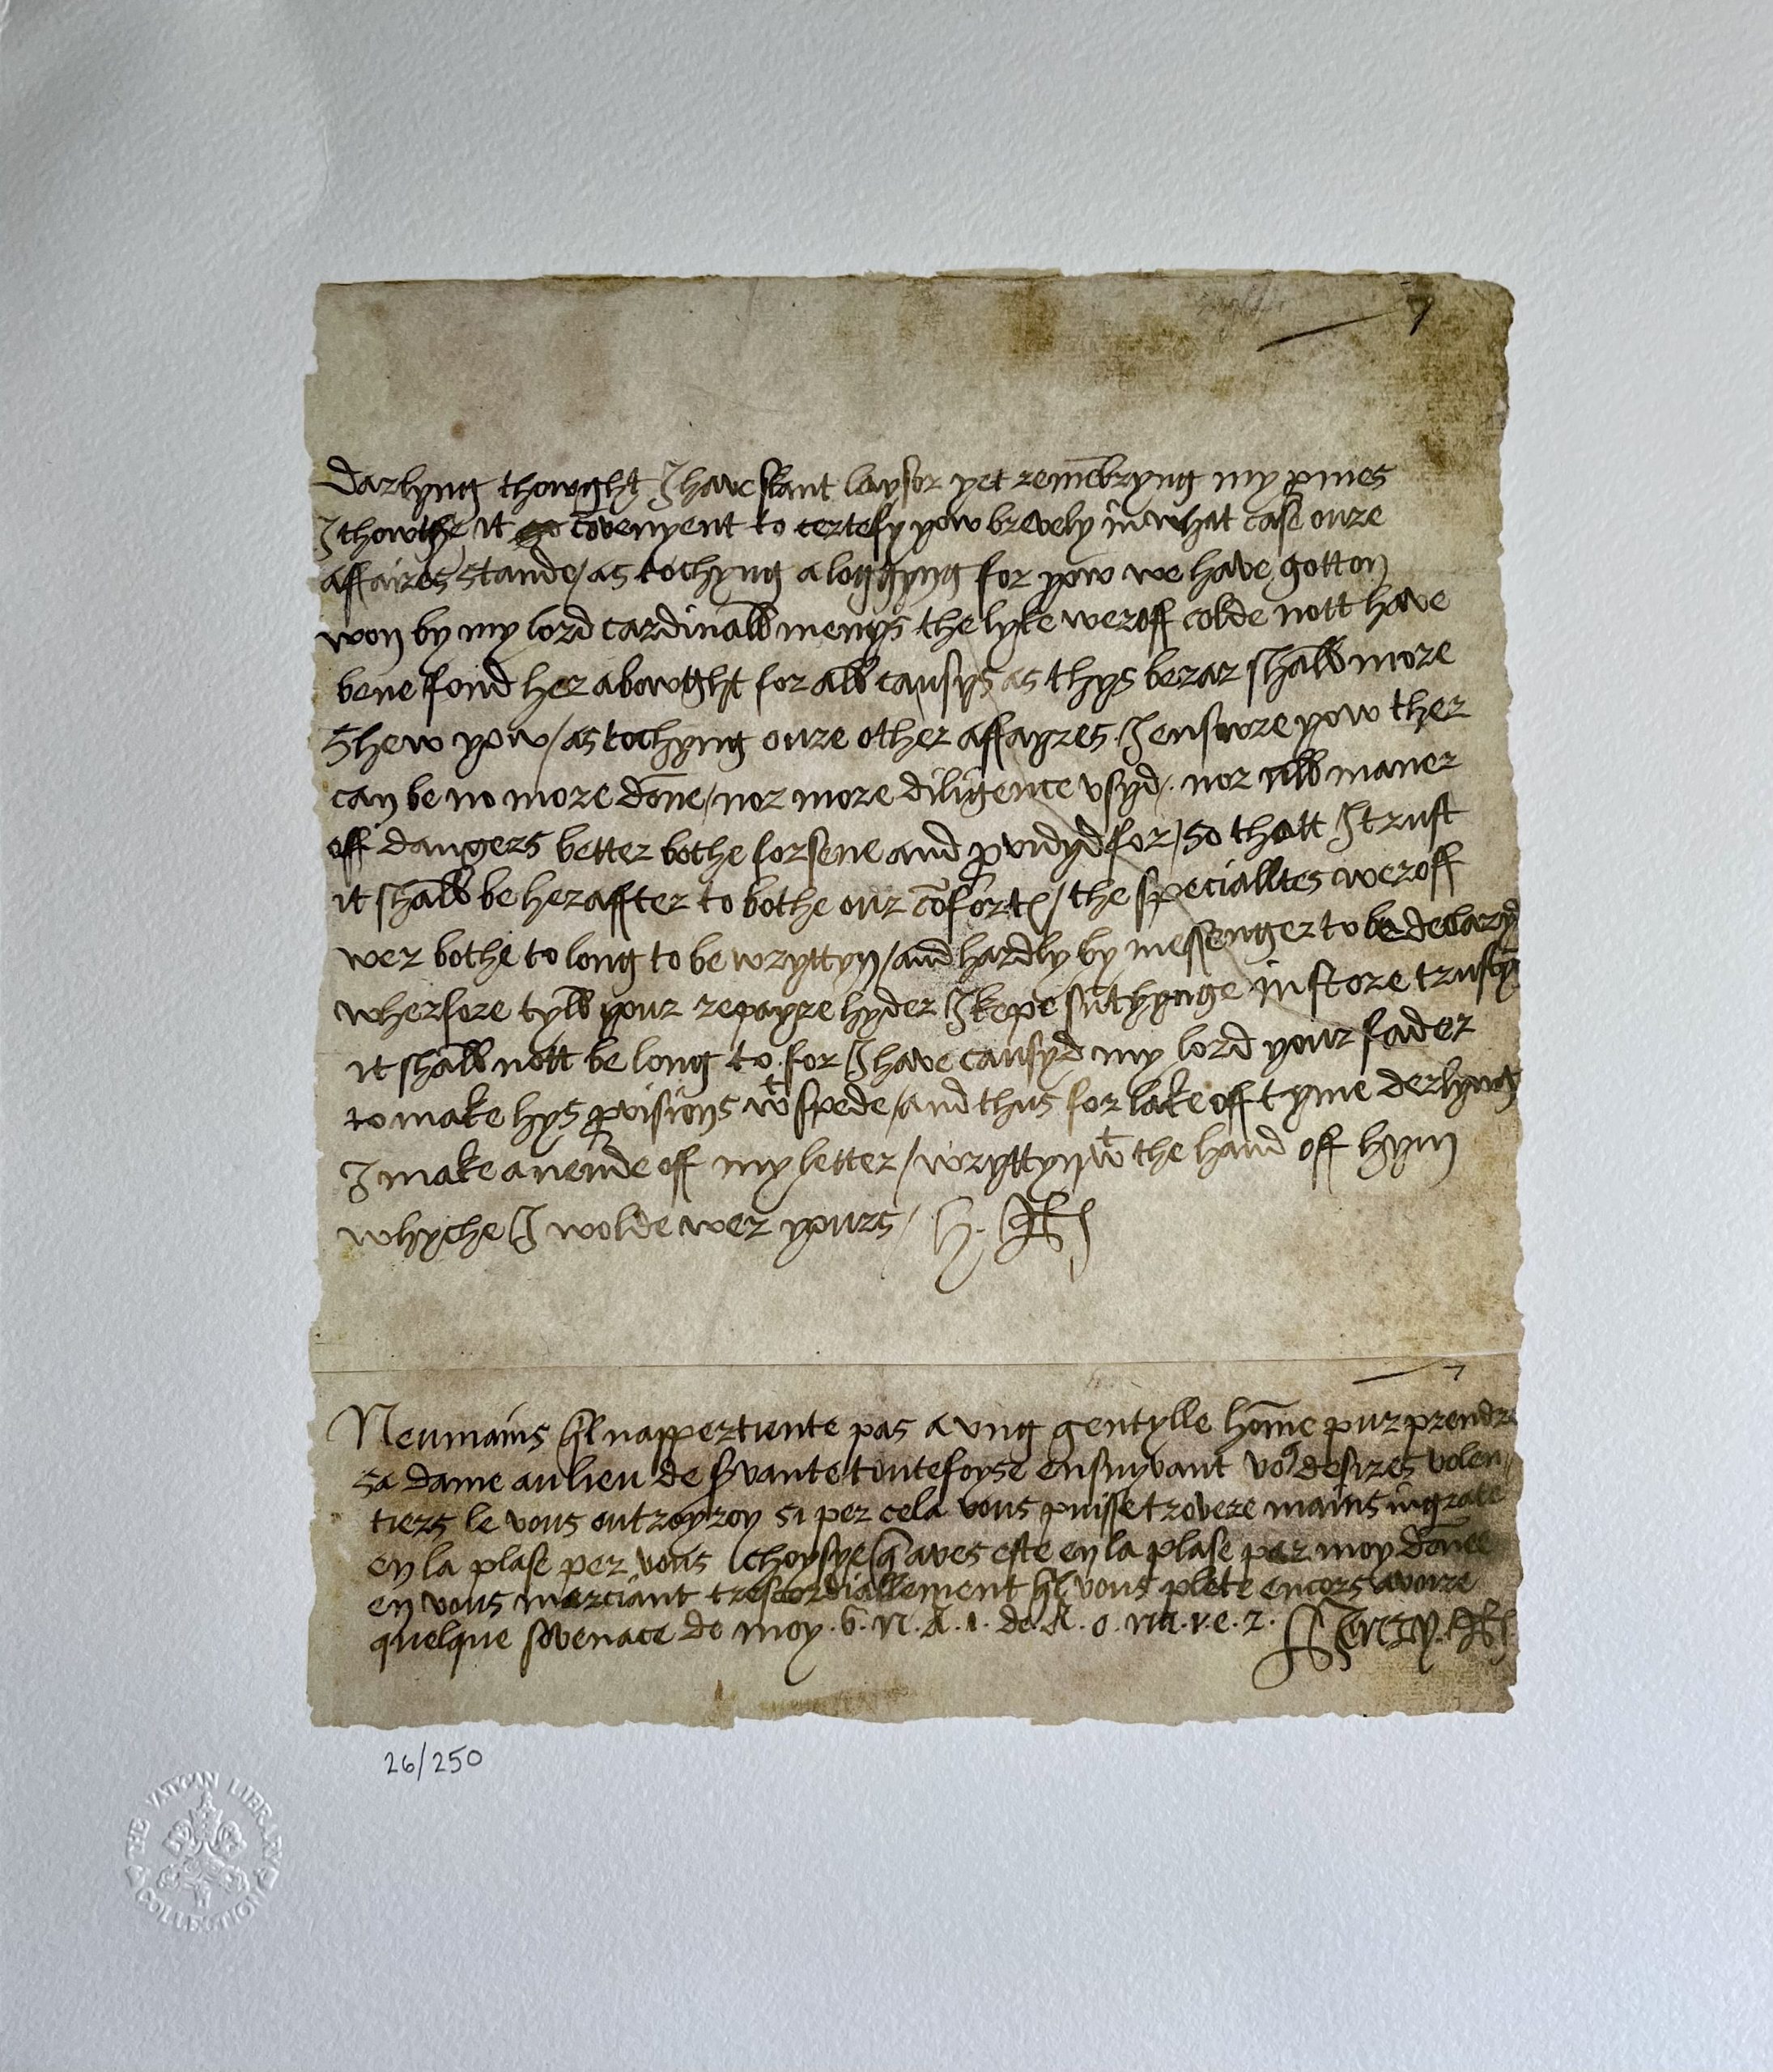 7
Darlyng thowght I have skant laysor yet remēbryng my pmes
I thowthe it cōvenyent to certefy yow brevely in what case oure
affaires stande / as tochyng a loggyng for yow we have gotton
won by my lord cardinall menys the lyke weroff colde nott have
bene fond her abowght for all causys as thys berar shall more
shew yow / as tochyng oure other affayres I ensure yow ther
can be no more done / nor more diligence usyd / nor all maner
off dangers better bothe forsene and pvidyd for / so thatt I trust
it shall be heraffter to bothe our cōfort / the specialltes weroff
wer bothe to long to be wryttyn / and hardly by messenger to be declaryd
wherfore tyll your repayre hyder I kepe sūthynge in store trustyng
it shall nott be long to for I have causyd my lord your fader
to make hys pvisions wt spede / and thus for lake off tyme derlyng
I make an ende off my letter / wryttyn wt the hand off hym
whyche I wolde wer yours / H. R
7
Neumains ql nappertiente pas a ung gentylle home pur prendre
sa dame au lieu de svante toutefoyse ensuyvant vos desires volen
tiers le vous outroyroy si per cela vous puisse trovere mains ingrate
en la plase per vous choysye q aves este en la plase per moy donee
en vous merciant trescordiallement ql vous plete encors avoire
quelque sovenace de moy . 6 . n . A . 1 . de A . o . na . v . e . r . Henry R
26/250
THE VATICAN LIBRARY COLLECTION